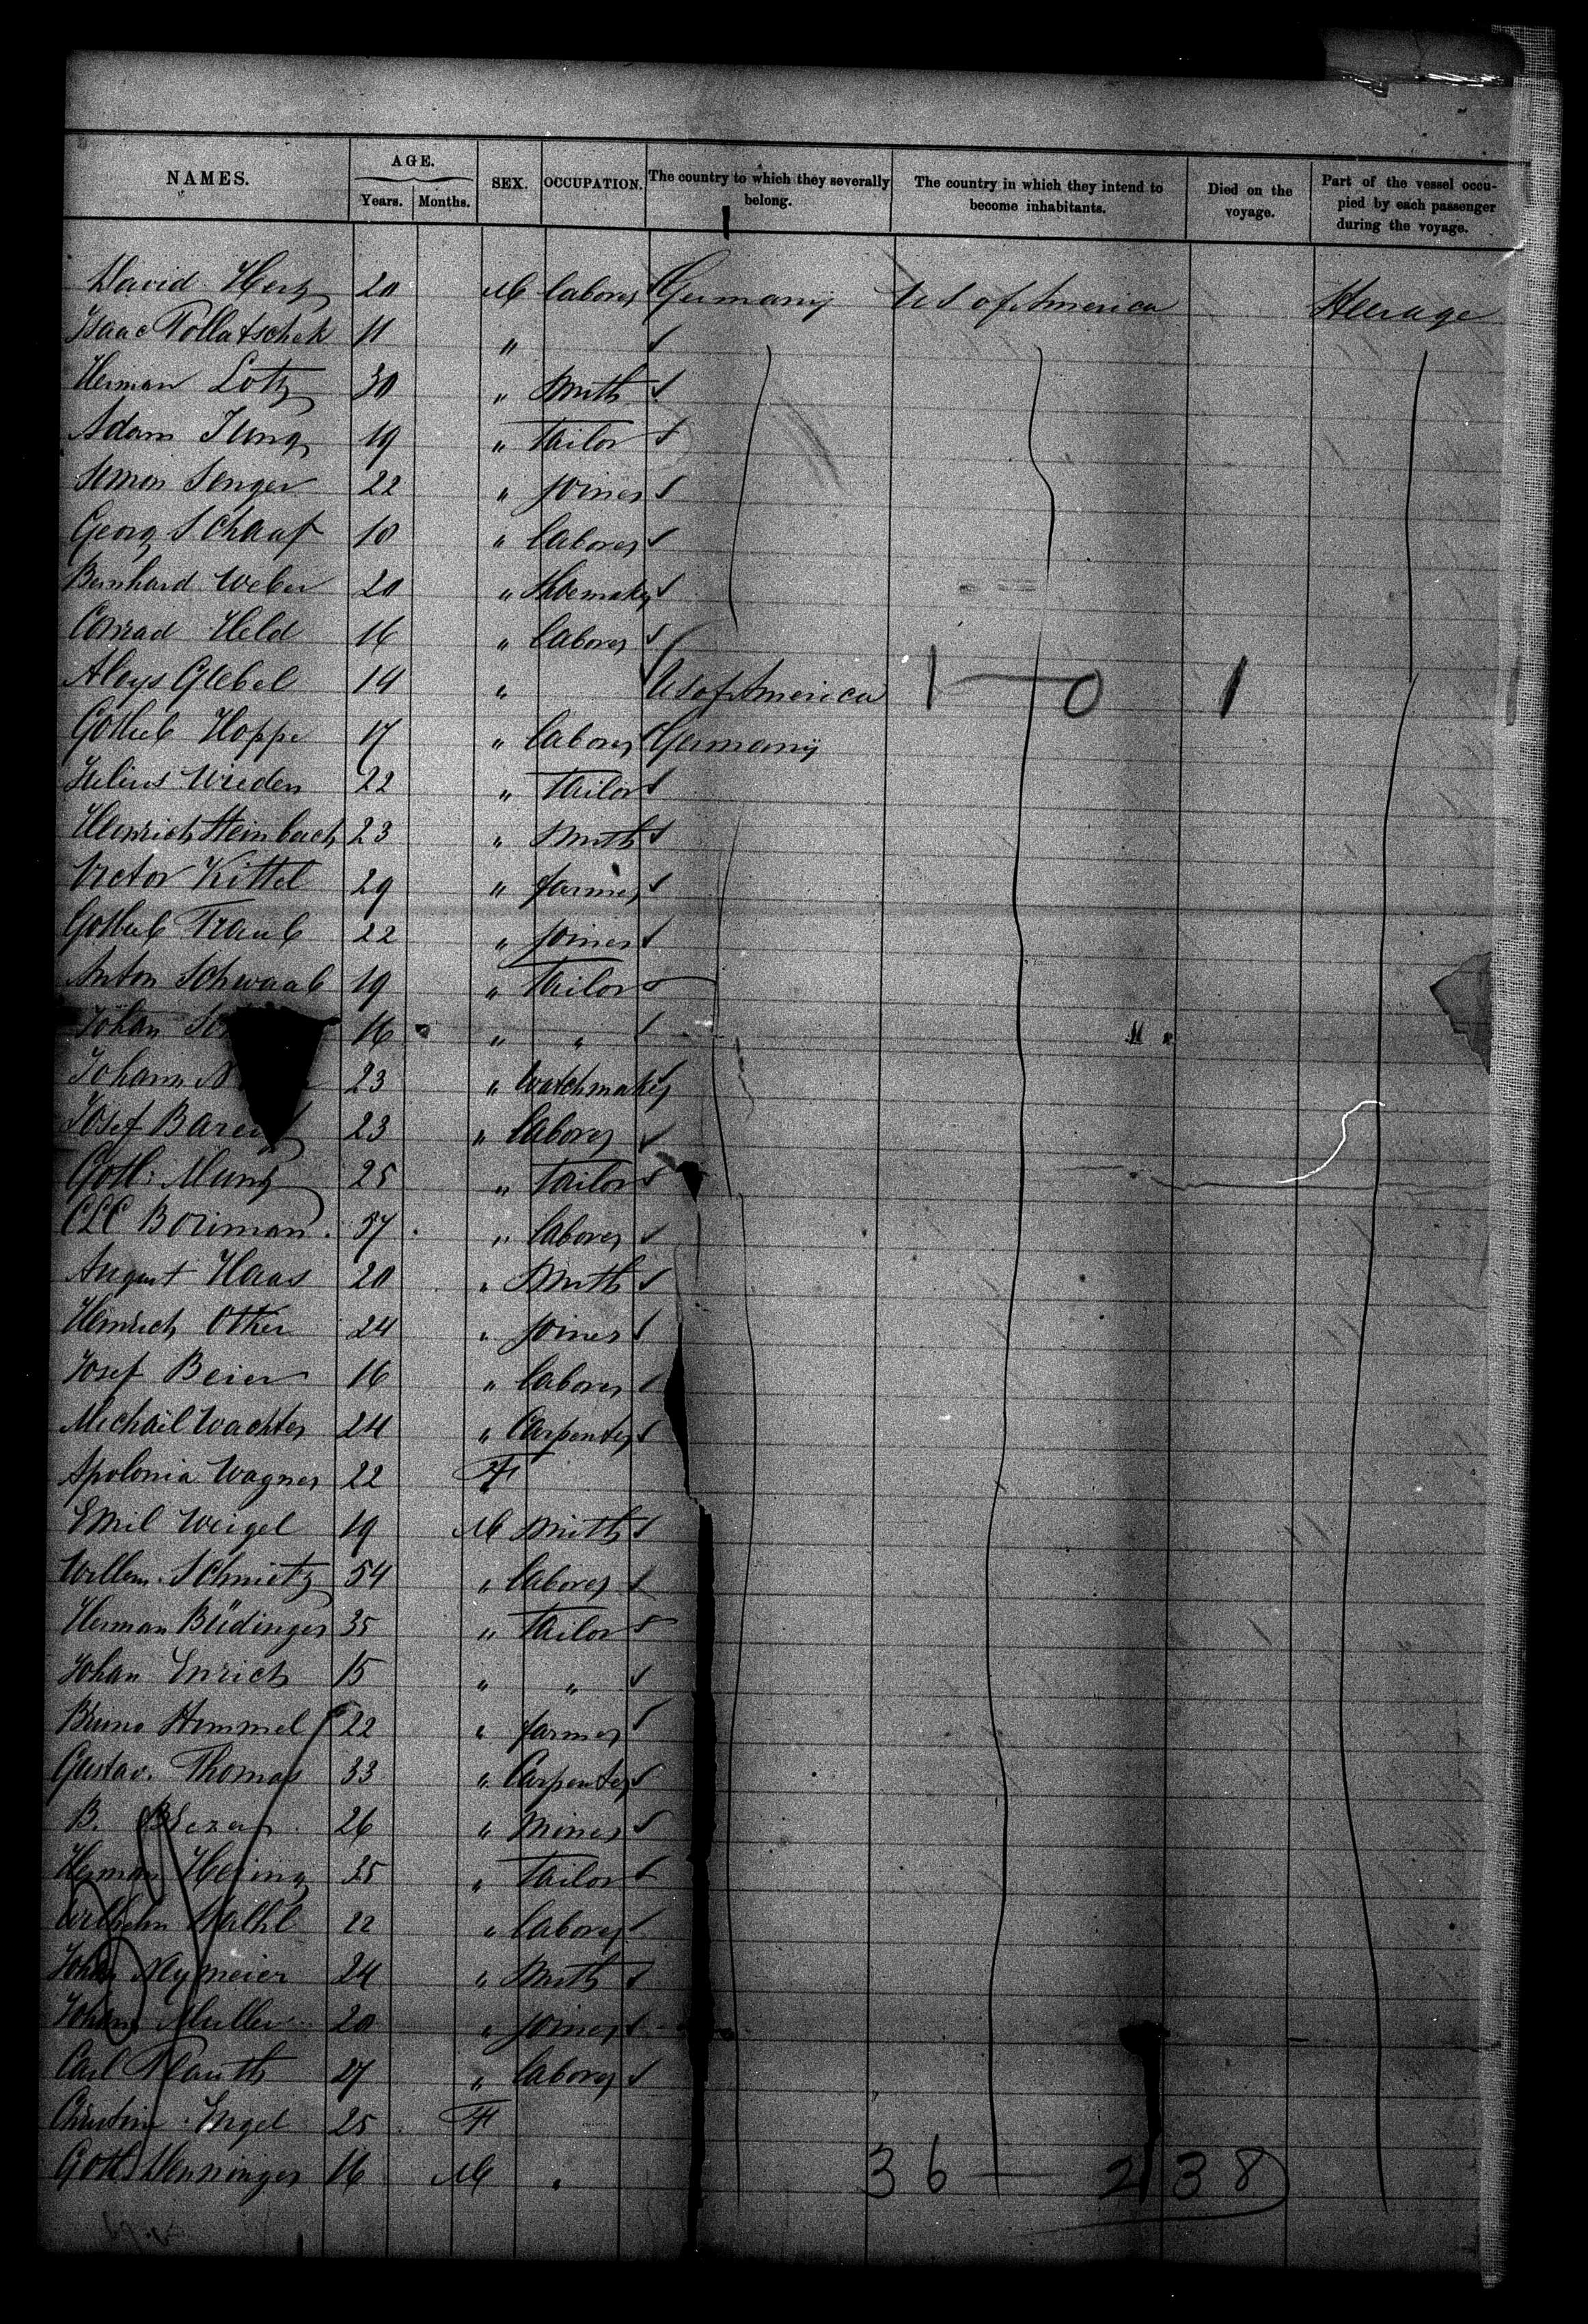 NAMES. AGE. SEX. OCCUPATION. The country to which they severally belong. The country in which they intend to become inhabitants. Died on the voyage. Part of the vessel occupied by each passenger during the voyage.
Years. Months.
David Hertz 20 M laborer Germany U S of America Steerage
Isaac Pollatschek 11 "
Herman Lotz 30 " smith
Adam Jung 19 " Tailor
Simon Senger 22 " joiner
Georg Schaaf 18 " laborer
Bernhard Weber 20 " Shoemaker
Conrad Held 16 " laborer
Aloys Giebel 14 " U S of America 1 — 0 1
Gottlieb Hoppe 17 " laborer Germany
Julius Wieden 22 " Tailor
Heinrich Steinbach 23 " smith
Victor Kittel 29 " farmer
Gottlieb Traub 22 " joiner
Anton Schwaab 19 " Tailor
Johan 16 " "
Johann 23 " Watchmaker
Josef 23 " laborer
Gottl: Munz 25 " Tailor
CLC Boriman 57 " laborer
August Haas 20 " smith
Heinrich Otker 24 " joiner
Josef Beier 16 " laborer
Michaël Wachter 24 " Carpenter
Apolonia Wagner 22 F
Emil Weigel 19 M smith
Willem Schmitz 54 " laborer
Herman Büdinger 35 " Tailor
Johan Enrich 15 " "
Bruno Himmel 22 " farmer
Gustav. Thomas 33 " Carpenter
B. 26 " miner
Herman Hering 25 " Tailor
Wilhelm 22 " laborer
Johan Neymeier 24 " smith
Johann Muller 20 " joiner
Carl Plauth 27 " laborer
Christine Engel 25 F
Gottl. Henninger 16 M " 36 — 2 38